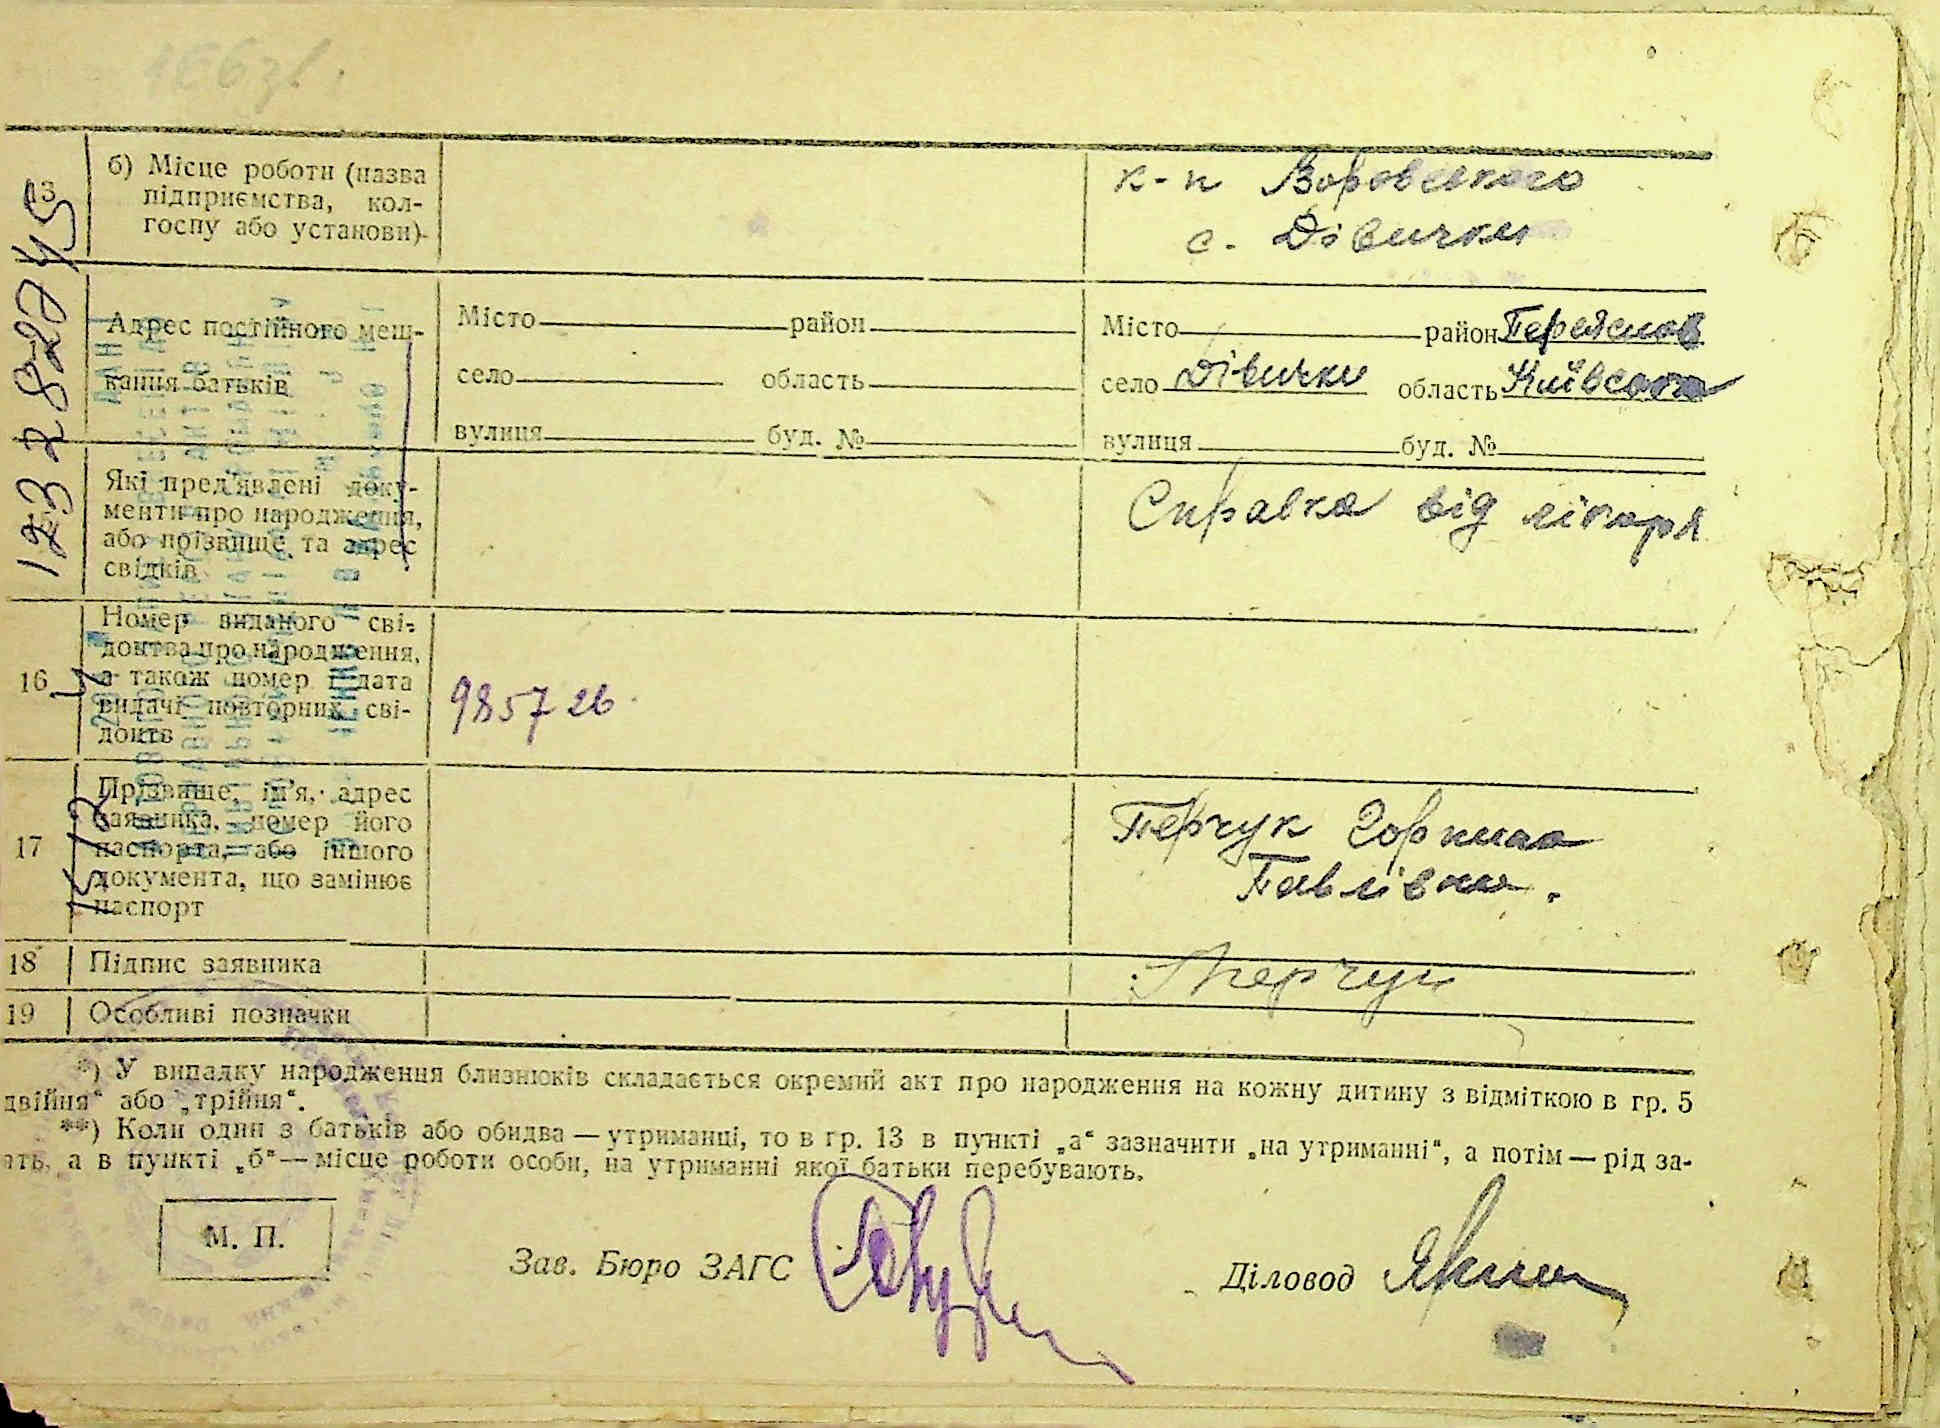 13
б) Місце роботи (назва
підприємства, кол-
госпу або установи)
к-п Воровського
с. Дівички
Адрес постійного меш-
кання батьків
Місто район
село область
вулиця буд. №
Місто район Переяслов
село Дівички область Київська
вулиця буд. №
Які пред'явлені доку-
менти про народження,
або прізвище та адрес
свідків
Справка від лікаря
16
Номер виданого сві-
доцтва про народження,
а також номер і дата
видачі повторних сві-
доцтв
985726
17
Прізвище, ім'я, адрес
заявника, номер його
паспорта, або іншого
документа, що замінює
паспорт
Перчук Горпина
Павлівна.
18 Підпис заявника
Перчук
19 Особливі позначки
*) У випадку народження близнюків складається окремий акт про народження на кожну дитину з відміткою в гр. 5
двійня“ або „трійня“.
**) Коли один з батьків або обидва — утриманці, то в гр. 13 в пункті „а“ зазначити „на утриманні“, а потім — рід за-
ать, а в пункті „б“ — місце роботи особи, на утриманні якої батьки перебувають.
М. П.
Зав. Бюро ЗАГС
Діловод